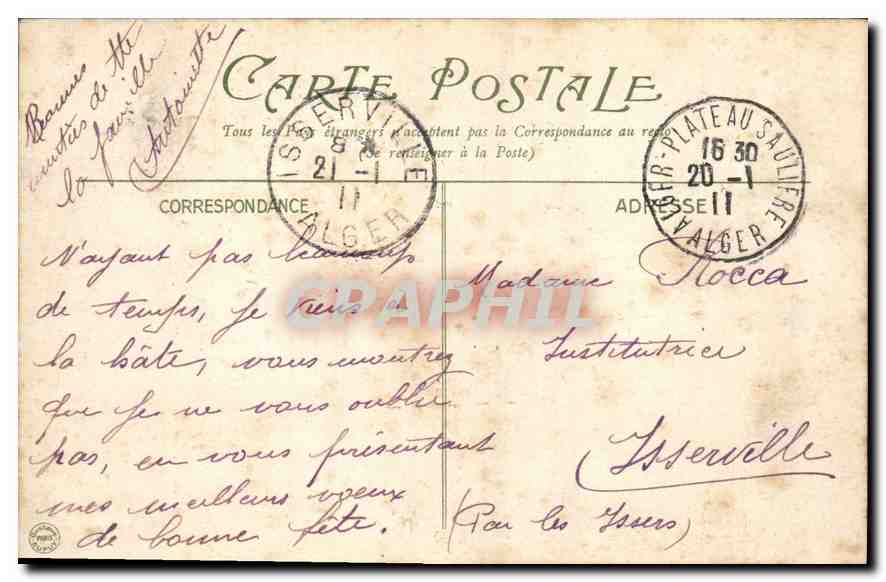 CARTE POSTALE
Tous les Pays étrangers n'acceptent pas la Correspondance au recto
(Se renseigner à la Poste)
CORRESPONDANCE
ADRESSE
ISSERVILLE
8
21 -1
11
ALGER
ALGER-PLATEAU SAULIERE
16 30
20 -1
11
ALGER
Bonnes
amitiés de tte
la famille
Antoinette
N'ayant pas beaucoup
de temps, je viens à
la hâte, vous montrez
que je ne vous oublie
pas, en vous présentant
mes meilleurs voeux
de bonne fête.
Madame Rocca
Institutrice
Isserville
(Par les Issers)
CPAPHIL
PARIS